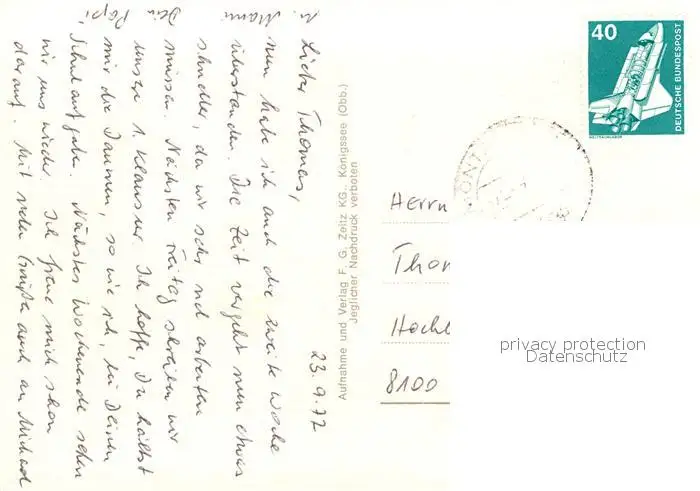 23.9.77
Lieber Thomas,
nun habe ich auch die zweite Woche
überstanden. Die Zeit vergeht nun etwas
schneller, da wir sehr viel arbeiten
müssen. Nächsten Freitag schreiben wir
unsere 1. Klausur. Ich hoffe, Du hältst
mir die Daumen, so wie ich, bei Deinen
Schulaufgaben. Nächstes Wochenende sehen
wir uns wieder. Ich freue mich schon
darauf. Mit vielen Grüßen auch an Michael
u. Mami
Dein Papi
Aufnahme und Verlag F. G. Zeitz KG., Königssee (Obb.)
Jeglicher Nachdruck verboten
40
DEUTSCHE BUNDESPOST
WELTRAUMLABOR
Herrn
Thom
Hochl
8100
privacy protection
Datenschutz